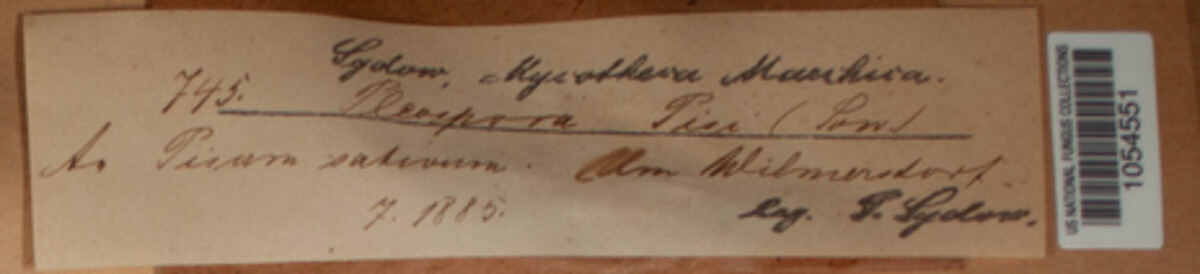 Sydow, Mycotheca Marchica.
745. Pleospora Pisi (Sow)
An Pisum sativum. Um Wilmersdorf.
7. 1885.
leg. P. Sydow.
US NATIONAL FUNGUS COLLECTIONS
1054551